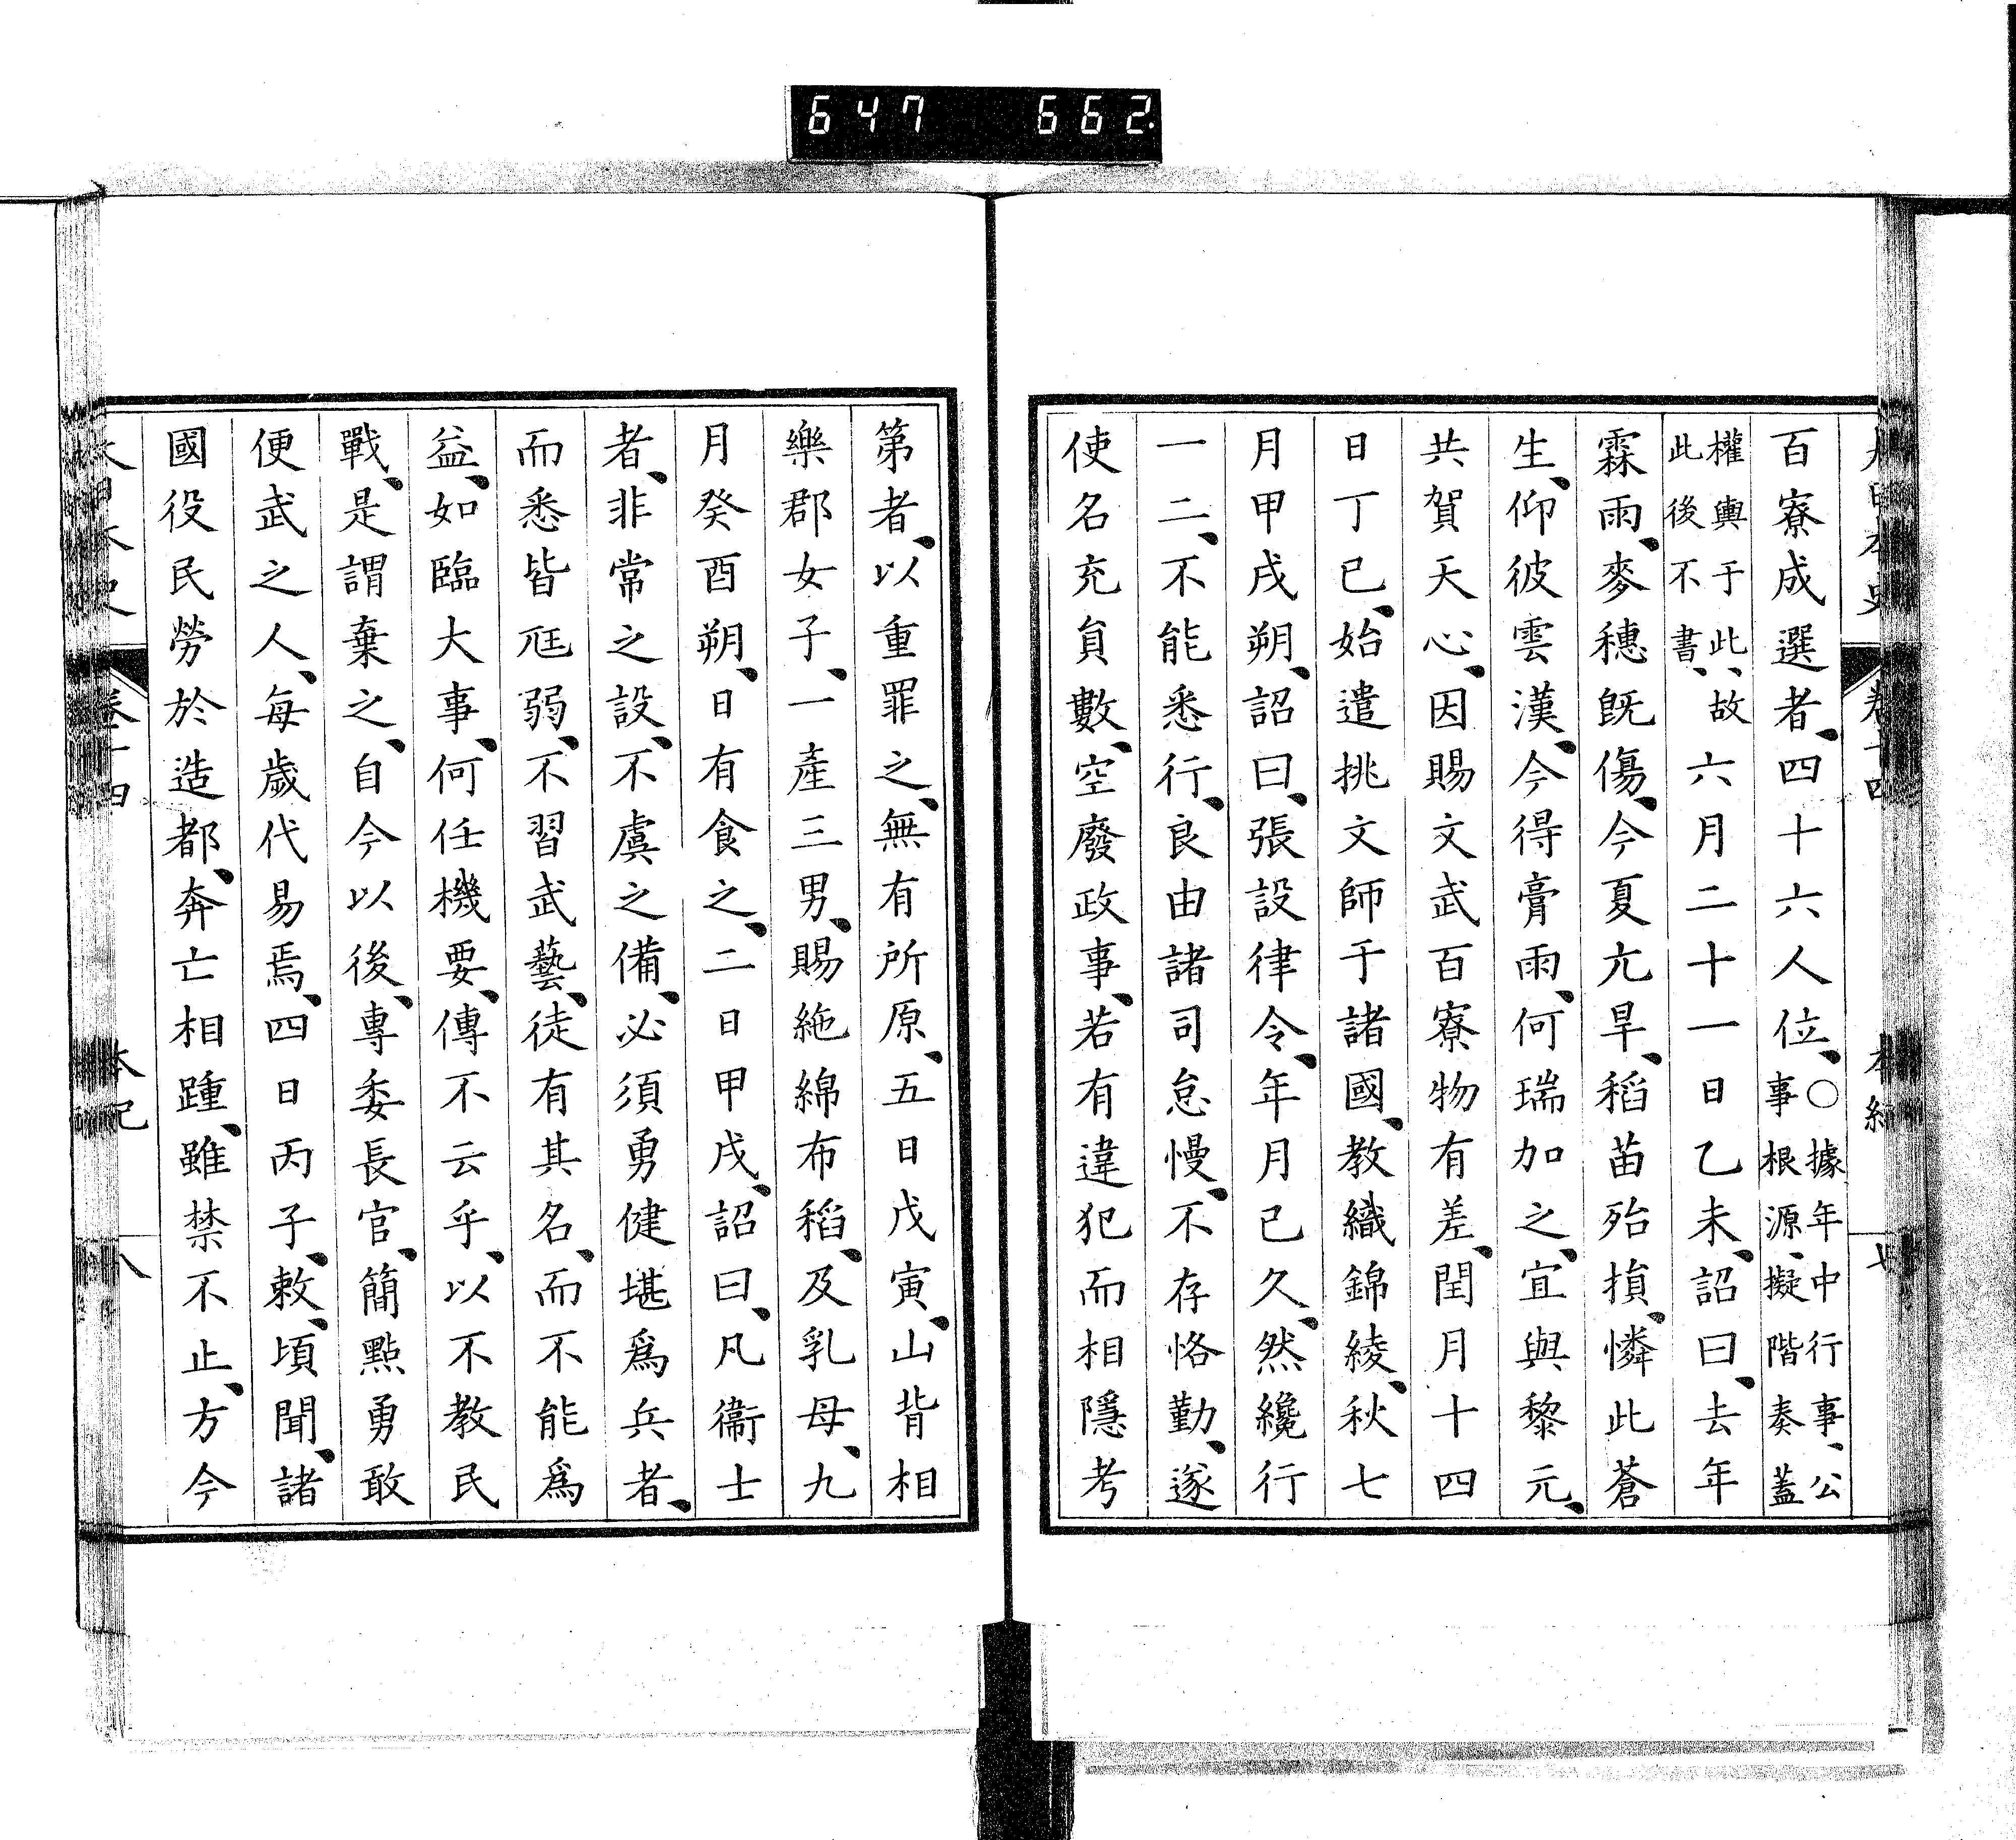 647 662.
百寮成選者、四十六人位、○據年中行事、公事根源、擬階奏蓋
權輿于此、故此後不書、六月二十一日乙未、詔曰、去年
霖雨、麥穗既傷、今夏亢旱、稻苗殆損、憐此蒼
生、仰彼雲漢、今得膏雨、何瑞加之、宜與黎元、
共賀天心、因賜文武百寮物有差、閏月十四
日丁巳、始遣挑文師于諸國、教織錦綾、秋七
月甲戌朔、詔曰、張設律令、年月已久、然纔行
一二、不能悉行、良由諸司怠慢、不存恪勤、遂
使名充員數、空廢政事、若有違犯而相隱考
第者、以重罪之、無有所原、五日戊寅、山背相
樂郡女子、一產三男、賜絁綿布稻、及乳母、九
月癸酉朔、日有食之、二日甲戌、詔曰、凡衞士
者、非常之設、不虞之備、必須勇健堪爲兵者、
而悉皆尩弱、不習武藝、徒有其名、而不能爲
益、如臨大事、何任機要、傳不云乎、以不教民
戰、是謂棄之、自今以後、專委長官、簡點勇敢
便武之人、每歲代易焉、四日丙子、敕、頃聞、諸
國役民勞於造都、奔亡相踵、雖禁不止、方今
卷十四
本紀
八